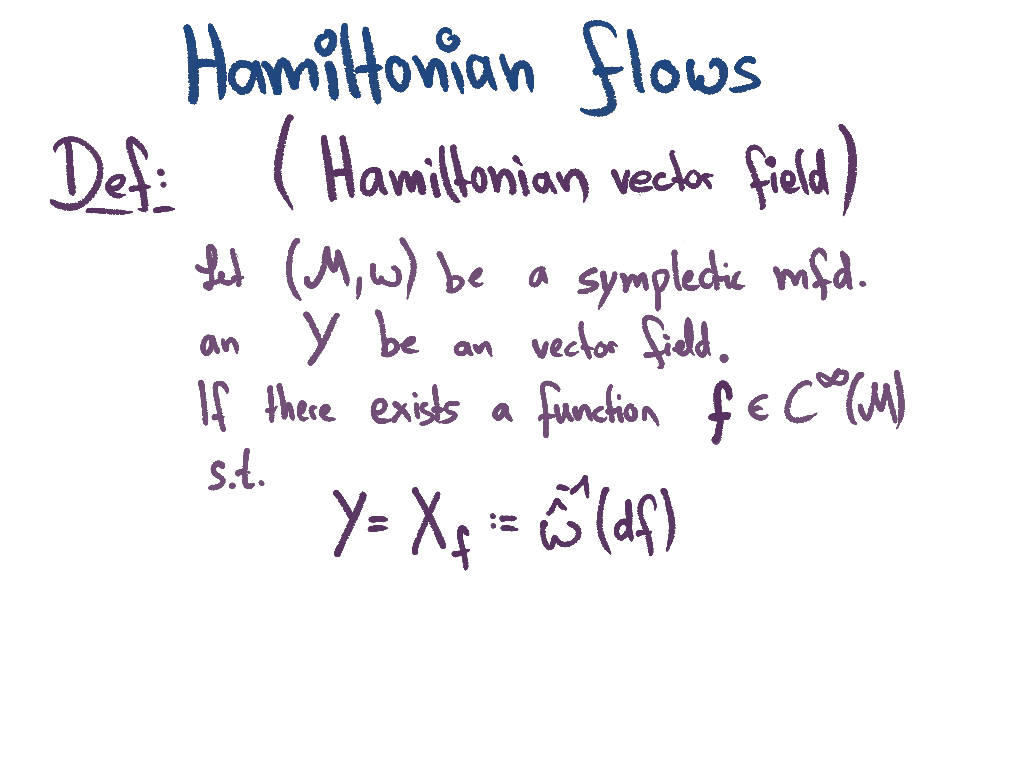 Hamiltonian flows
Def: (Hamiltonian vector field)
Let (M, ω) be a symplectic mfd.
an Y be an vector field.
If there exists a function f ∈ C^∞(M)
s.t.
Y = X_f := ω̂^{-1}(df)